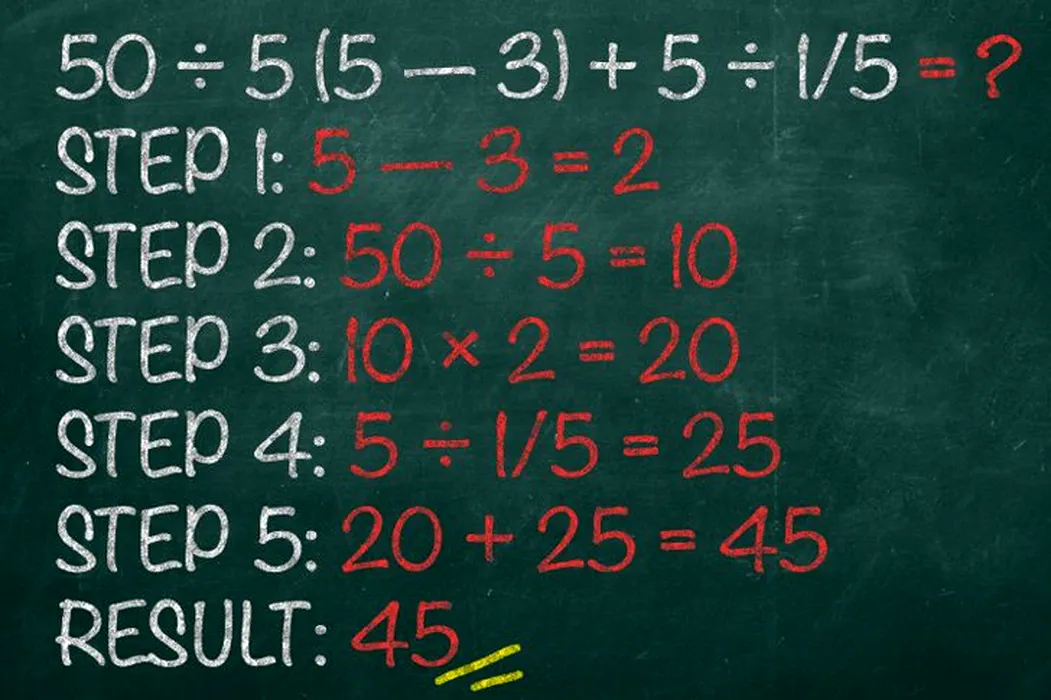 50 ÷ 5 (5 — 3) + 5 ÷ 1/5 = ?
STEP 1: 5 — 3 = 2
STEP 2: 50 ÷ 5 = 10
STEP 3: 10 × 2 = 20
STEP 4: 5 ÷ 1/5 = 25
STEP 5: 20 + 25 = 45
RESULT: 45